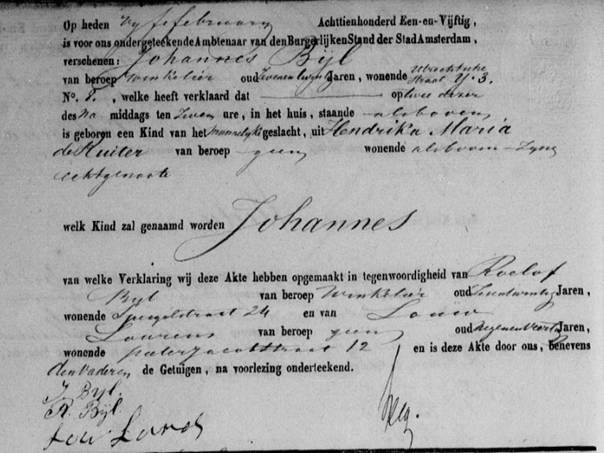 Op heden vyf february Achttienhonderd Een-en-Vijftig,
is voor ons ondergeteekende Ambtenaar van den Burgerlijken Stand der Stad Amsterdam,
verschenen: Johannes Byl
van beroep Winkelier oud zevenentwintig Jaren, wonende Utrechtsche Straat Y. 3.
N°. 8, welke heeft verklaard dat op twee dezer
des Na middags ten Zeven ure, in het huis, staande alsboven
is geboren een Kind van het mannelijk geslacht, uit Hendrika Maria
de Ruiter van beroep geen wonende alsboven Zyne
echtgenoote
welk Kind zal genaamd worden Johannes
van welke Verklaring wij deze Akte hebben opgemaakt in tegenwoordigheid van Roelof
Byl van beroep Winkelier oud Jaren,
wonende Spiegelstraat 24 en van Louw
Lourens van beroep geen oud negenenveertig Jaren,
wonende pieterjacobstraat 12 en is deze Akte door ons, benevens
den Vader en de Getuigen, na voorlezing onderteekend.
J Byl.
R. Byl.